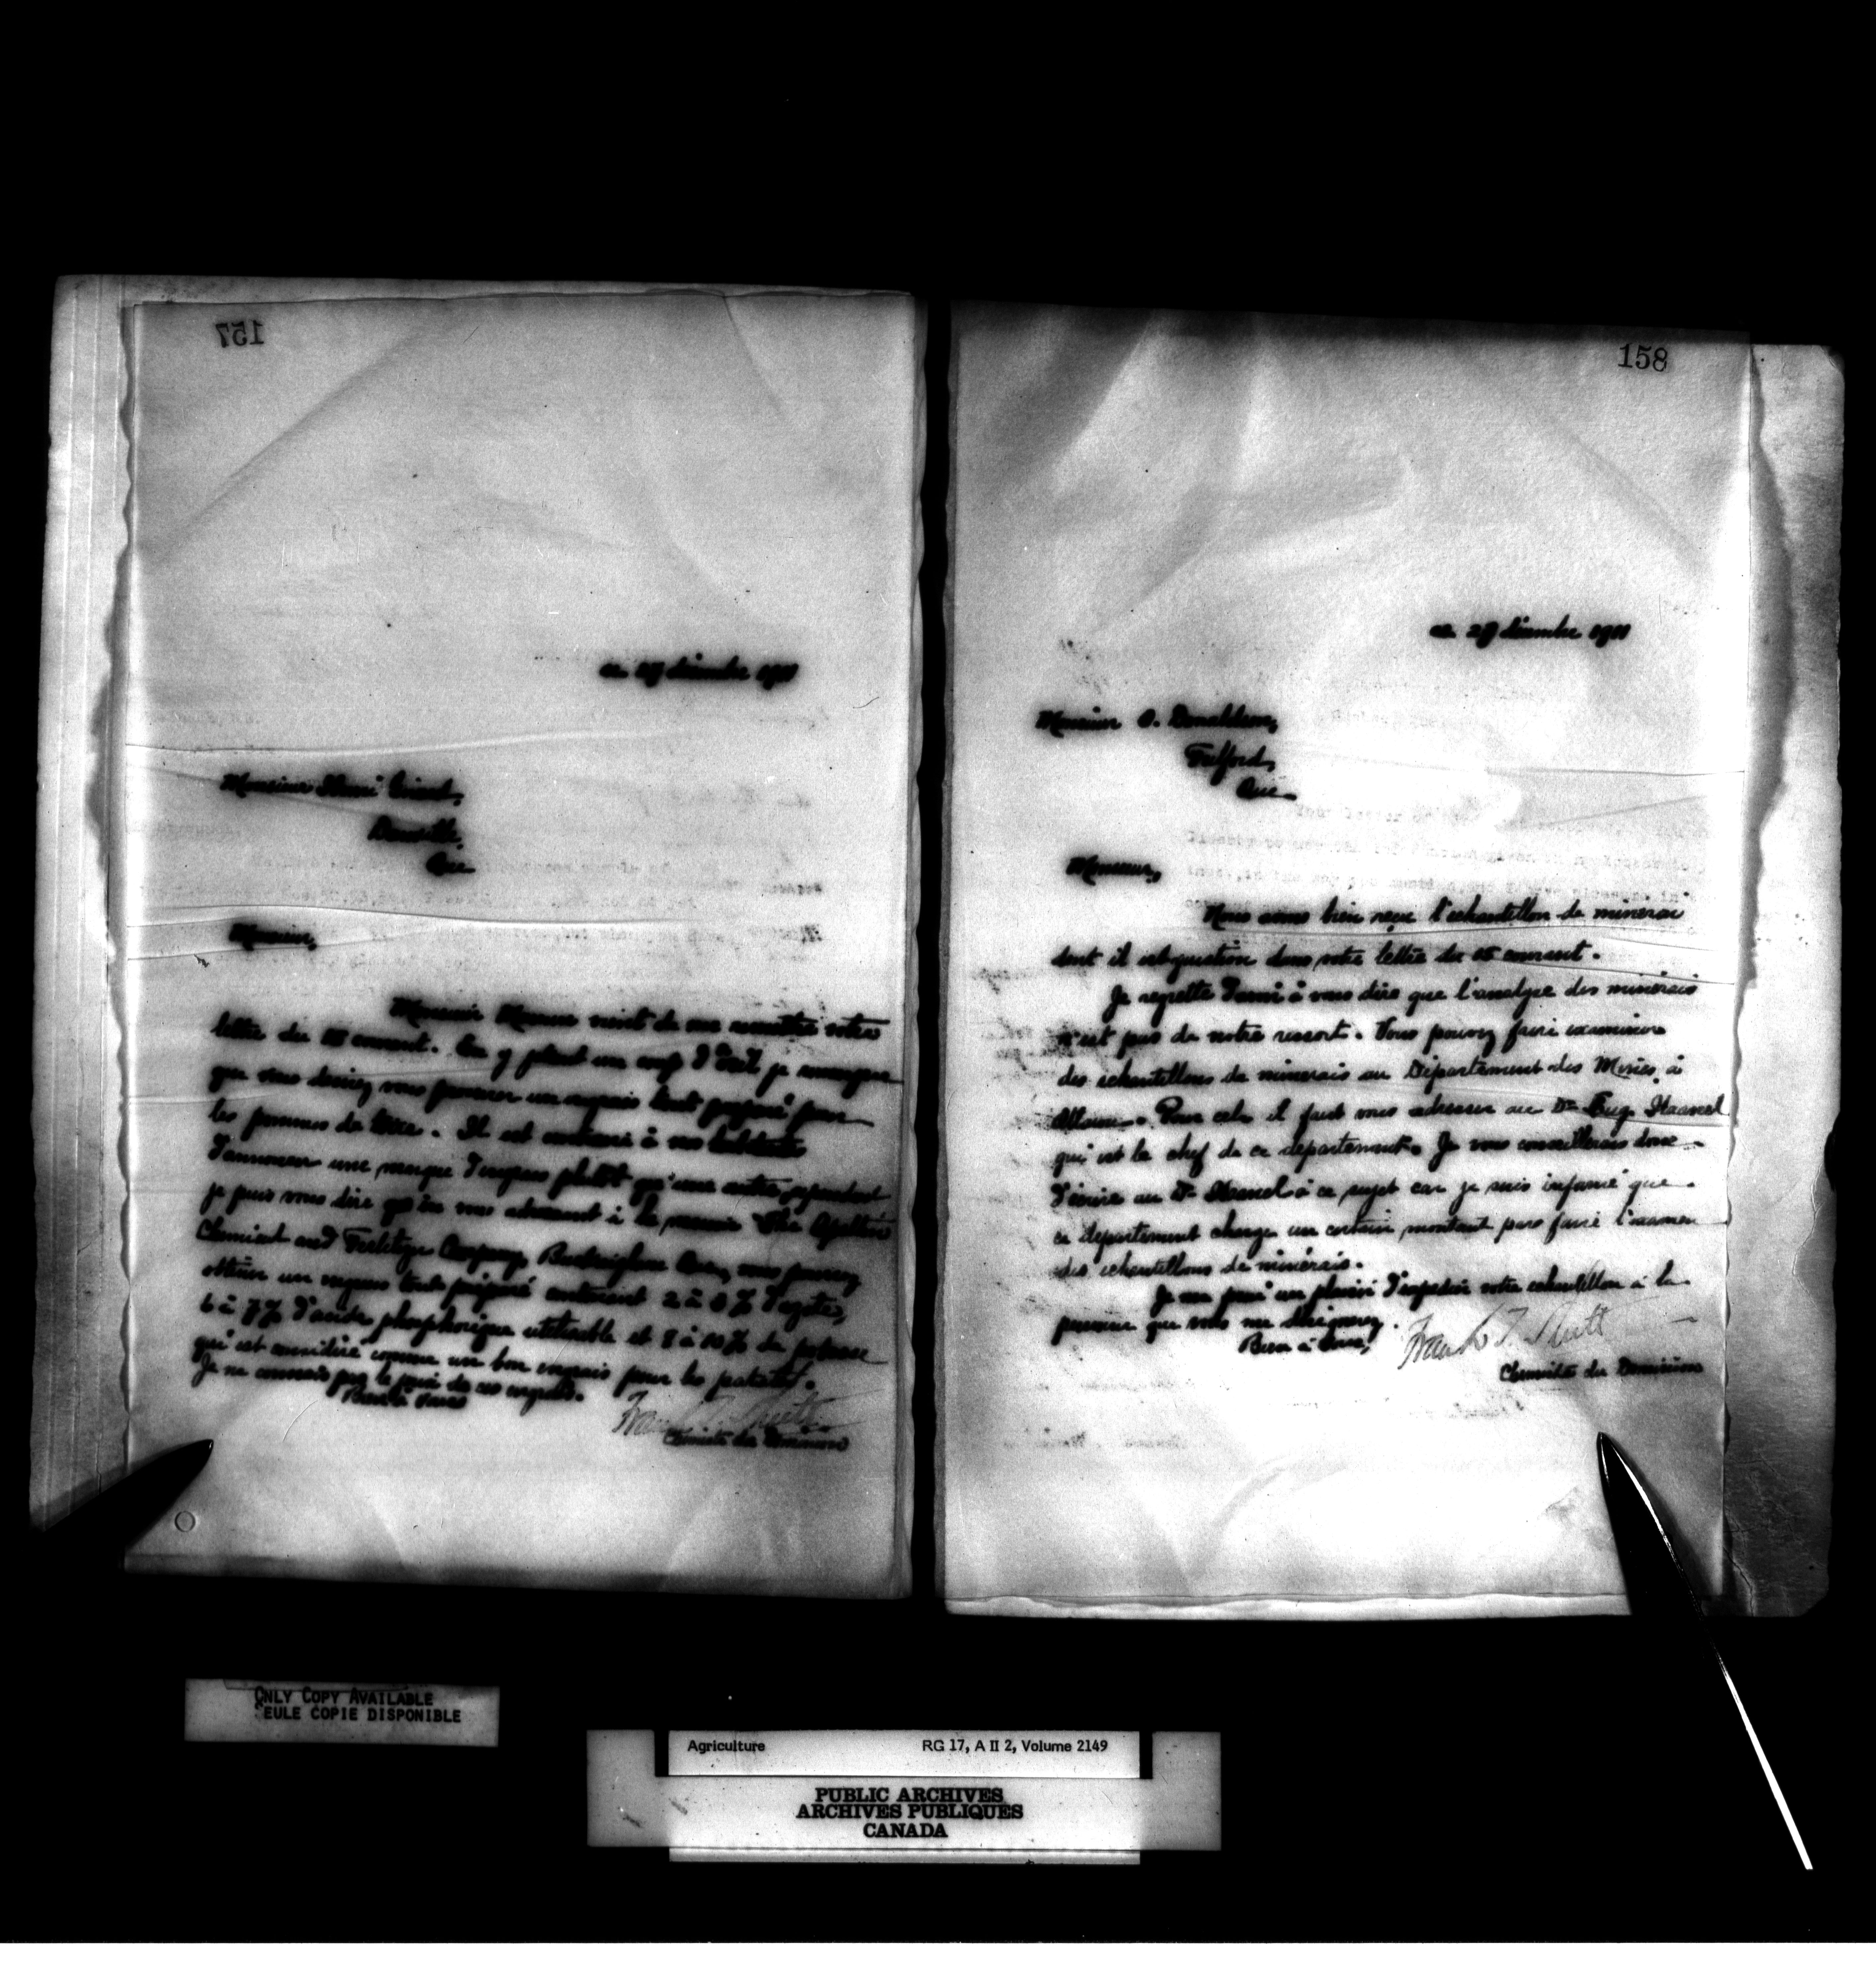 157
ce 27 décembre 1911
Monsieur Henri
Que
Monsieur,
Monsieur vient de me remettre votre
lettre du courant. En y jetant un coup d'oeil je
que vous devriez vous procurer un engrais tout préparé pour
les pommes de terre. Il est contraire à nos habitudes
d'annoncer une marque d'engrais plutôt qu'une autre, cependant
je puis vous dire qu'en vous adressant à la maison The
Chemical and Fertilizer Company, Que, vous pourrez
obtenir un engrais tout préparé contenant 2 à 3 % d'azote,
6 à 7 % d'acide phosphorique et 8 à 10 % de potasse
qui est considéré comme un bon engrais pour les patates.
Je ne connais pas le prix de ces engrais.
Bien à vous
Frank T. Shutt
Chimiste du Dominion
158
ce 27 décembre 1911
Monsieur O. Donaldson,
Fulford,
Que.
Monsieur,
Nous avons bien reçu l'échantillon de minerai
dont il est question dans votre lettre du courant.
Je regrette d'avoir à vous dire que l'analyse des minérais
n'est pas de notre ressort. Vous pouvez faire examiner
des échantillons de minerais au Département des Mines, à
Ottawa. Pour cela il faut vous adresser au Dr Eug. Haanel
qui est le chef de ce département. Je vous conseillerais donc
d'écrire au Dr Haanel à ce sujet car je suis informé que
ce département charge un certain montant pour faire l'examen
des échantillons de minérais.
Je me ferai un plaisir d'expédier votre échantillon à la
personne que vous me désignerez.
Bien à vous,
Frank T. Shutt
Chimiste du Dominion
ONLY COPY AVAILABLE
SEULE COPIE DISPONIBLE
Agriculture RG 17, A II 2, Volume 2149
PUBLIC ARCHIVES
ARCHIVES PUBLIQUES
CANADA